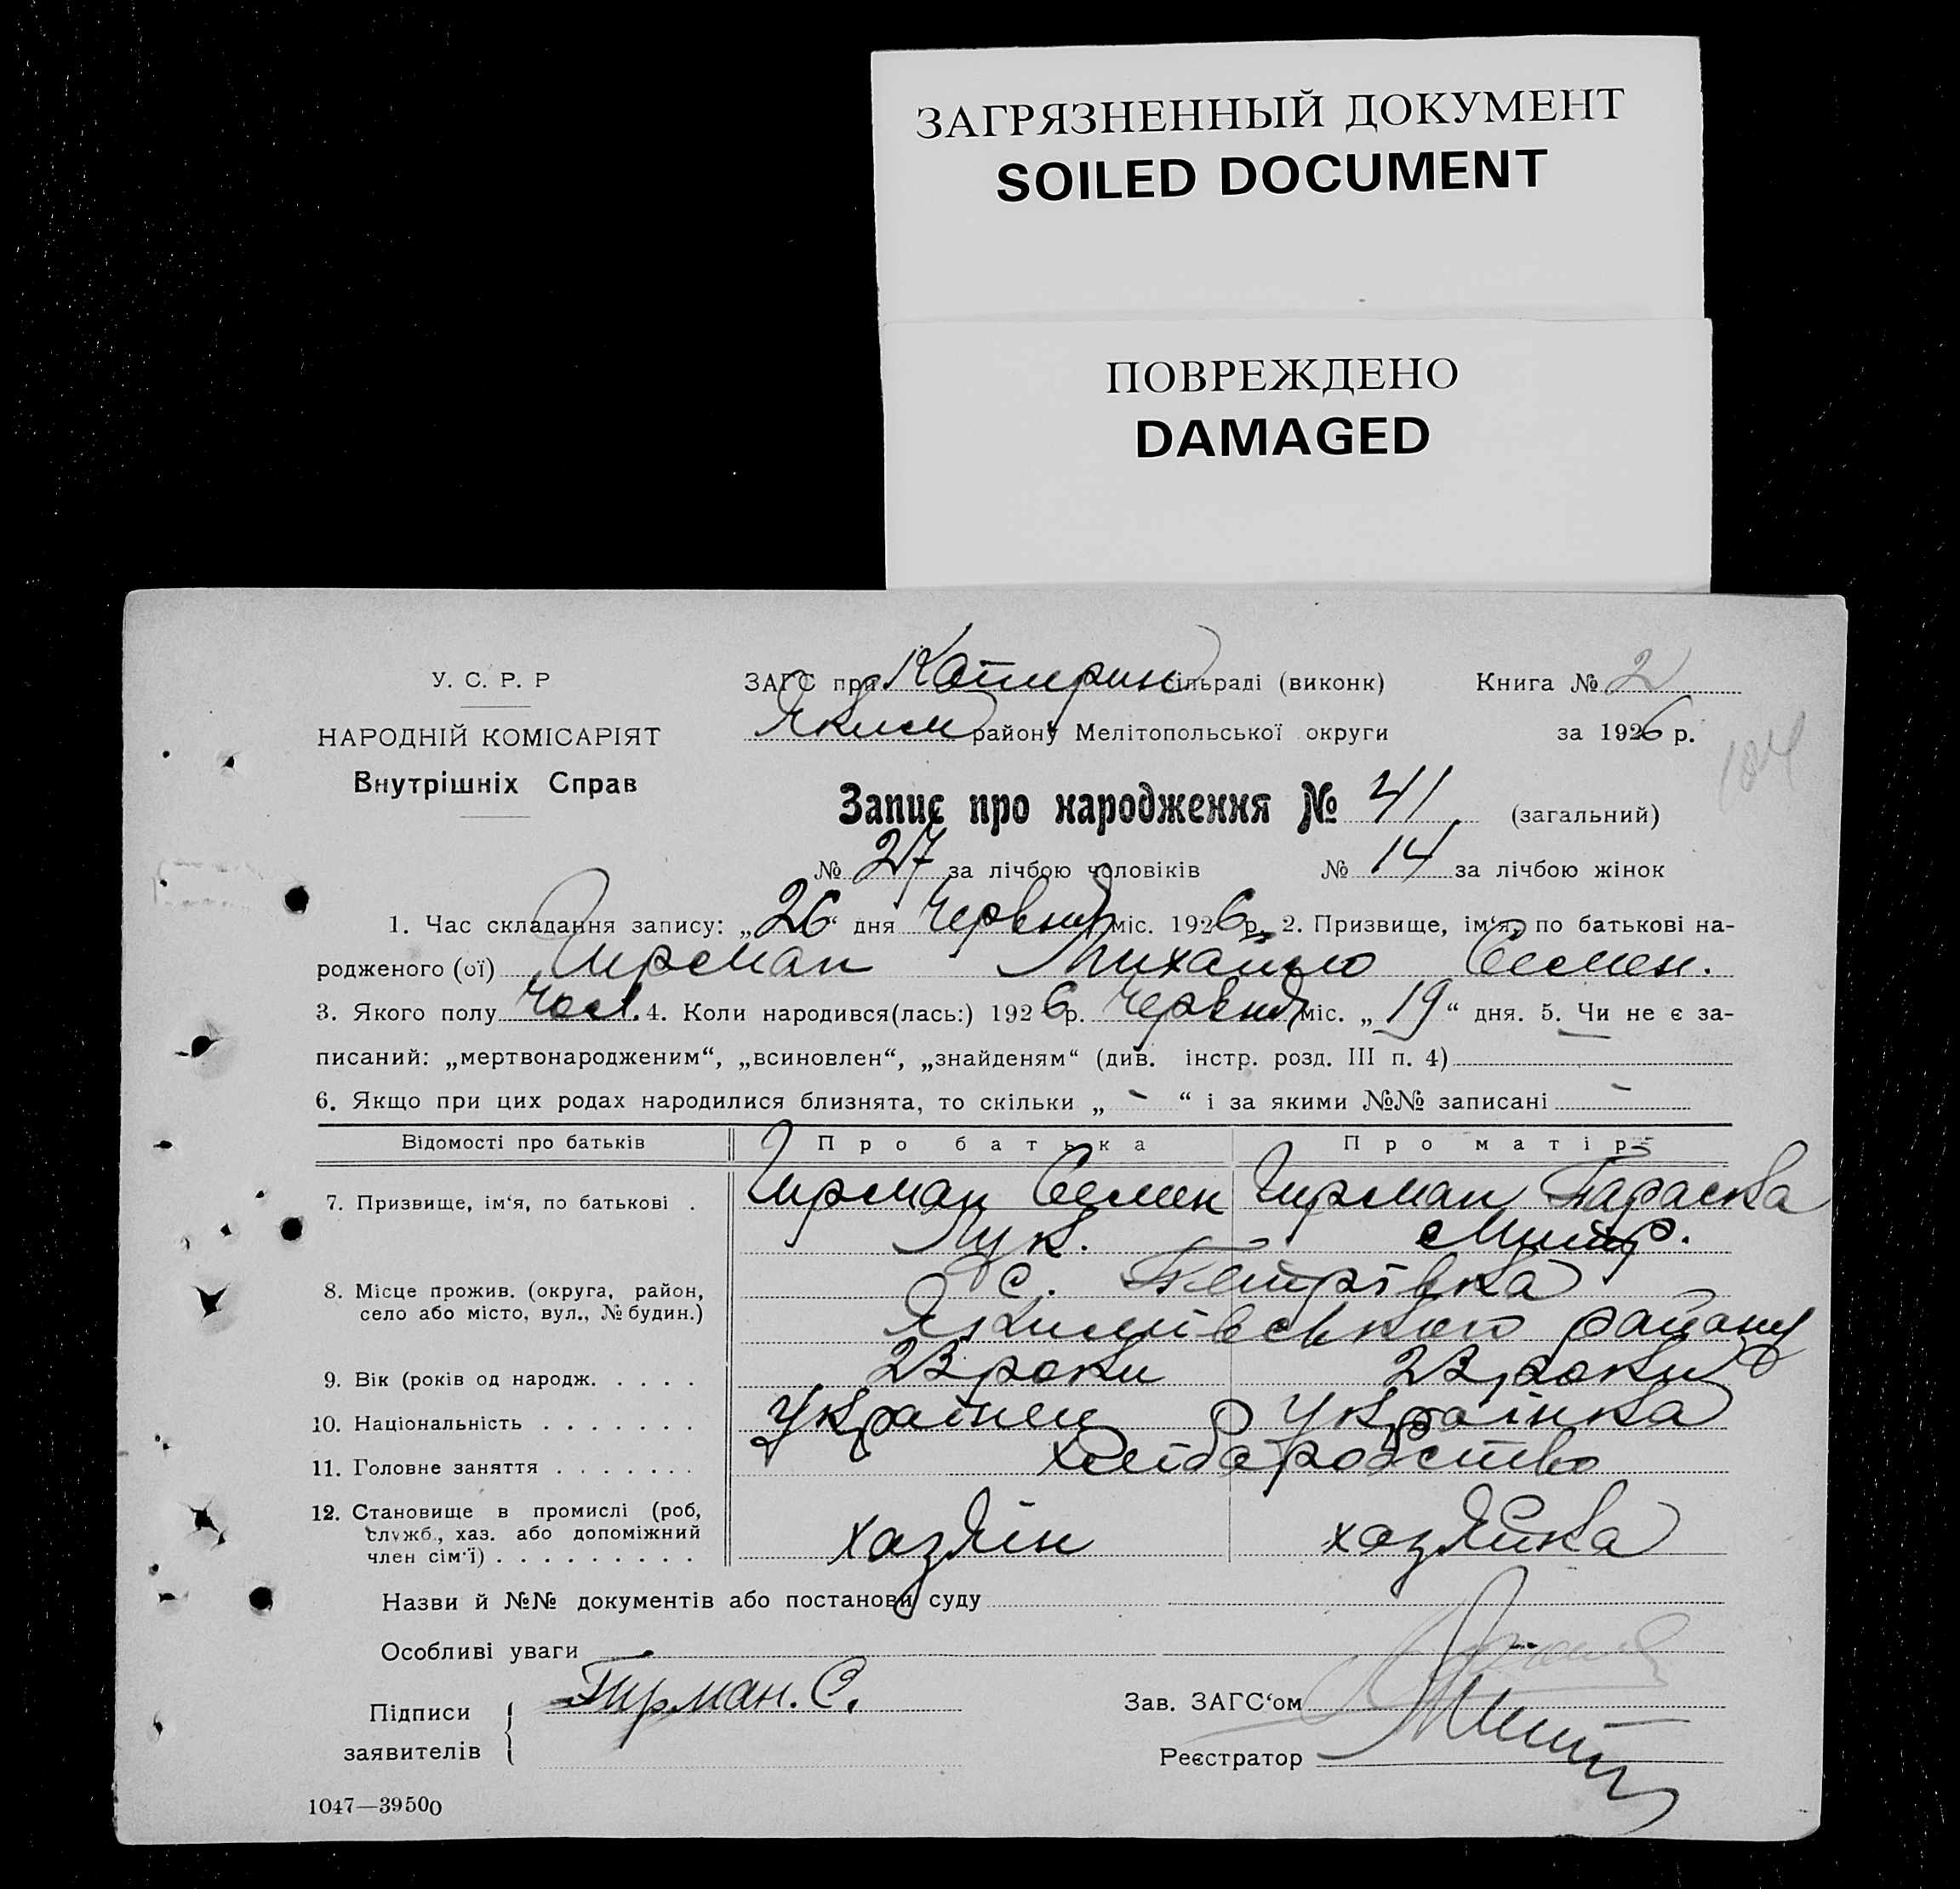 ЗАГРЯЗНЕННЫЙ ДОКУМЕНТ
SOILED DOCUMENT
ПОВРЕЖДЕНО
DAMAGED
У. С. Р. Р
НАРОДНІЙ КОМІСАРІЯТ
Внутрішніх Справ
ЗАГС при Катерин сільраді (виконк) Книга № 2
Яким району Мелітопольської округи за 1926 р.
104
Запис про народження № 41 (загальний)
№ 27 за лічбою чоловіків № 14 за лічбою жінок
1. Час складання запису: „26“ дня Червня міс. 1926 р. 2. Призвище, ім‘я, по батькові на-
родженого (ої) Гирман Михайло Семен.
3. Якого полу чол. 4. Коли народився(лась:) 1926 р. Червня міс. „19“ дня. 5. Чи не є за-
писаний: „мертвонародженим“, „всиновлен“, „знайденям“ (див. інстр. розд. III п. 4)
6. Якщо при цих родах народилися близнята, то скільки „ - “ і за якими №№ записані -
Відомості про батьків Про батька Про матір
7. Призвище, ім‘я, по батькові . Гирман Семен Гирман Параска
Лук. Митр.
8. Місце прожив. (округа, район, село або місто, вул., № будин.) с. Петрівка
Якимівського району
9. Вік (років од народж. . . . . 23 роки 23 роки
10. Національність . . . . . . . Українец Українка
11. Головне заняття . . . . . . . хліборобство
12. Становище в промислі (роб, служб., хаз. або допоміжний член сім‘ї) . . . . . . . . . хазяїн хазяйка
Назви й №№ документів або постанови суду
Особливі уваги
Підписи заявителів Гирман. С.
Зав. ЗАГС‘ом
Реєстратор
1047—39500